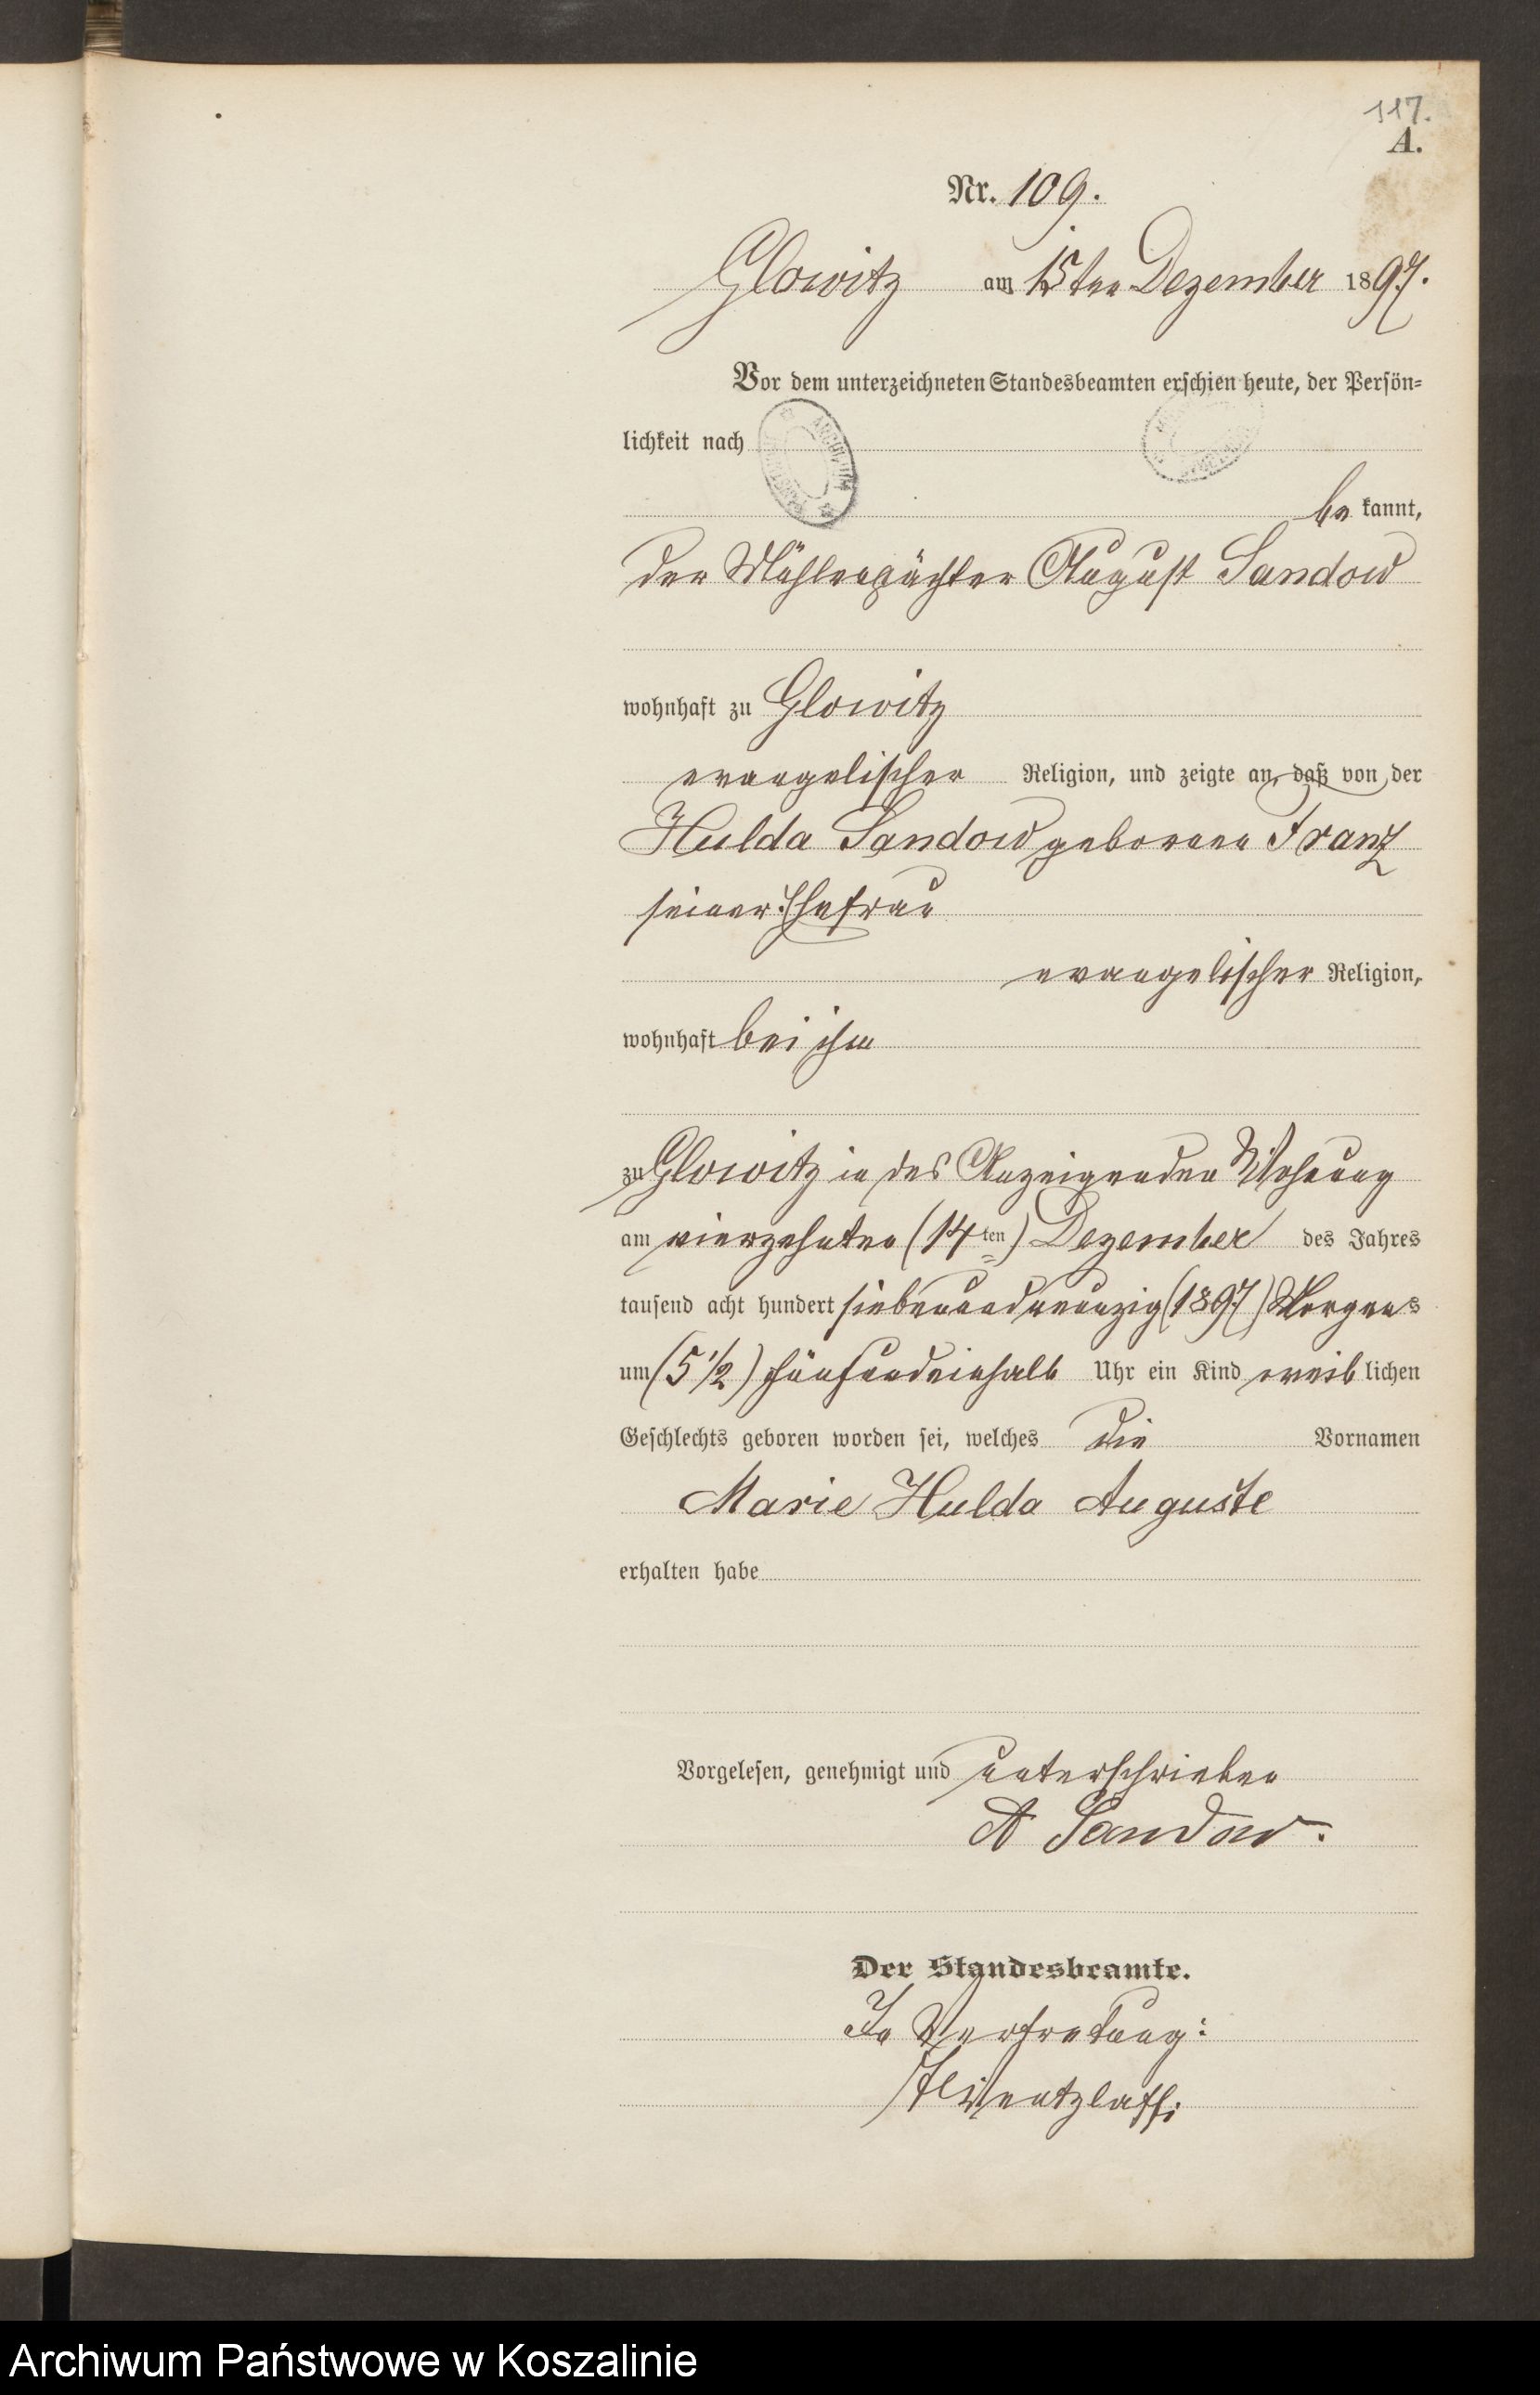 117.
A.
Nr. 109.
Glowitz am 15ten Dezember 1897.
Vor dem unterzeichneten Standesbeamten erschien heute, der Persön=
lichkeit nach
be kannt,
der Mühlenpächter August Sandow
wohnhaft zu Glowitz
evangelischer Religion, und zeigte an, daß von der
Hulda Sandow geborene Franz
seiner Ehefrau
evangelischer Religion,
wohnhaft bei ihm
zu Glowitz in des Anzeigenden Wohnung
am vierzehnten (14ten) Dezember des Jahres
tausend acht hundert siebenundneunzig (1897) Morgens
um (5 1/2) fünfundeinhalb Uhr ein Kind weib lichen
Geschlechts geboren worden sei, welches die Vornamen
Marie Hulda Auguste
erhalten habe
Vorgelesen, genehmigt und unterschrieben
A Sandow.
Der Standesbeamte.
In Vertretung:
Wentzlaff
Archiwum Państwowe w Koszalinie